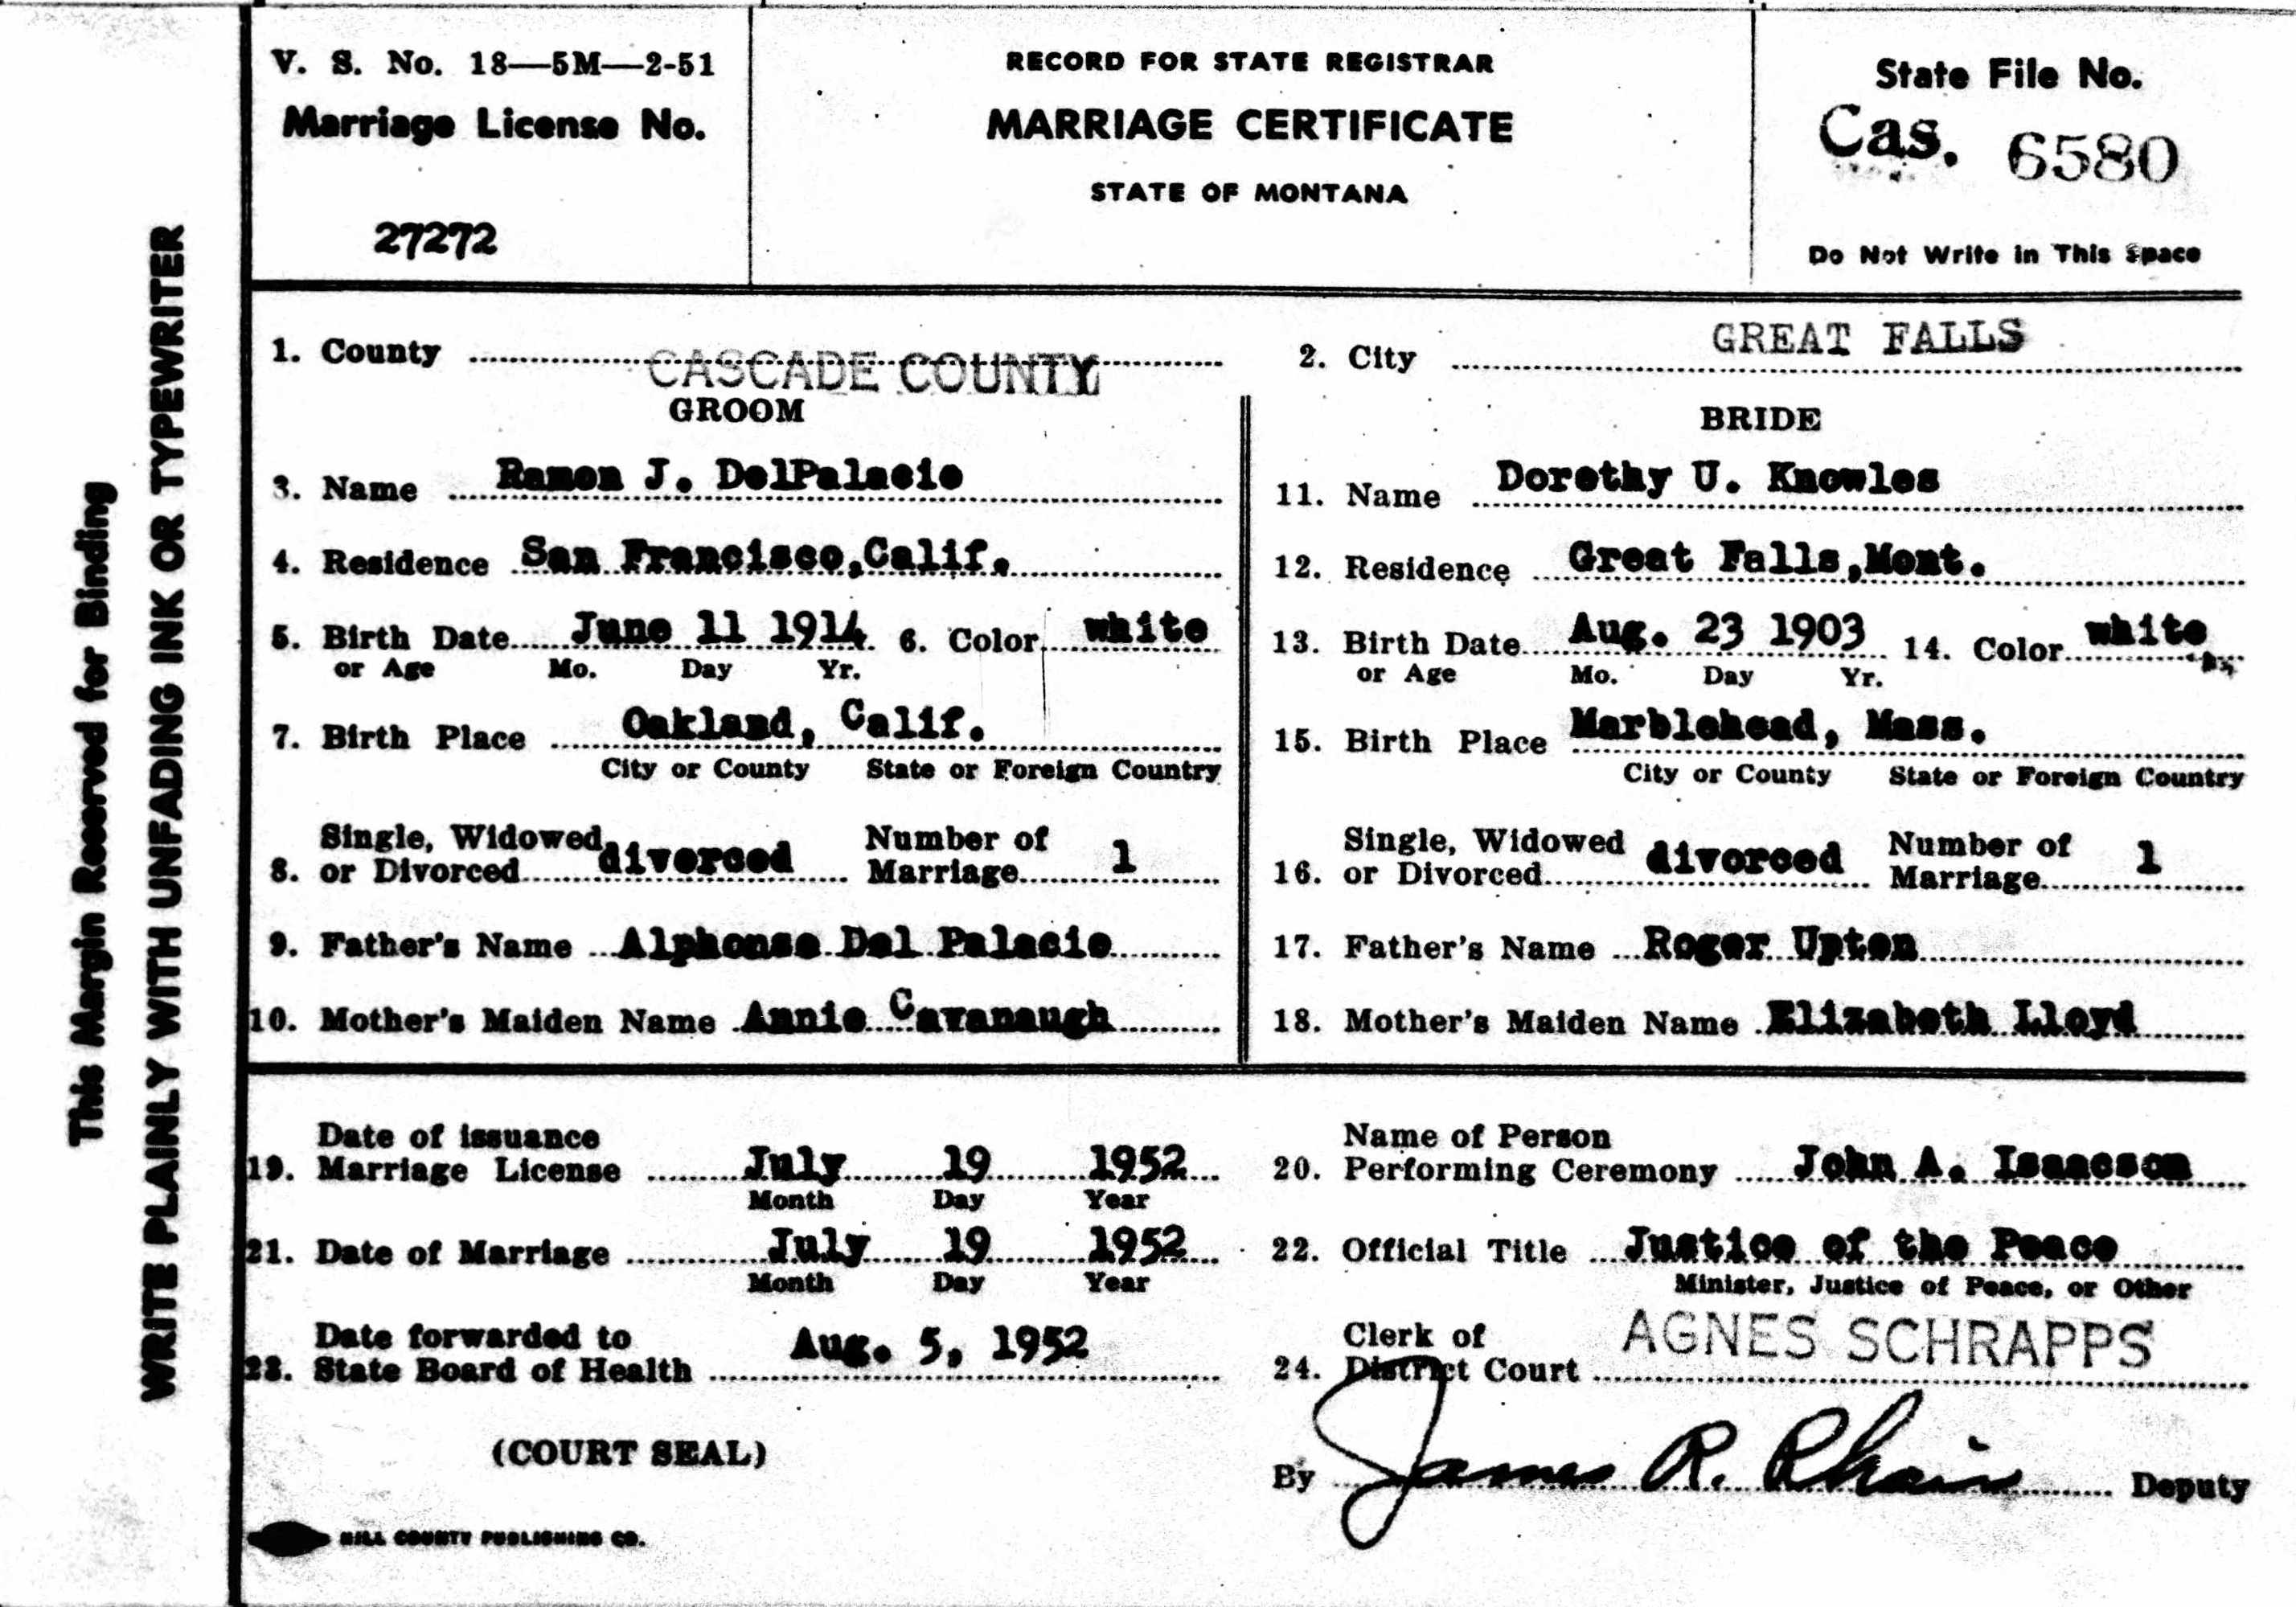 V. S. No. 18—5M—2-51
Marriage License No.
27272
RECORD FOR STATE REGISTRAR
MARRIAGE CERTIFICATE
STATE OF MONTANA
State File No.
Cas. 6580
Do Not Write in This Space
This Margin Reserved for Binding
WRITE PLAINLY WITH UNFADING INK OR TYPEWRITER
1. County CASCADE COUNTY
2. City GREAT FALLS
GROOM
3. Name Ramon J. DelPalacio
4. Residence San Francisco,Calif.
5. Birth Date June 11 1914 6. Color white
or Age Mo. Day Yr.
7. Birth Place Oakland, Calif.
City or County State or Foreign Country
Single, Widowed Number of
8. or Divorced divorced Marriage 1
9. Father's Name Alphonse Del Palacio
10. Mother's Maiden Name Annie Cavanaugh
BRIDE
11. Name Dorothy U. Knowles
12. Residence Great Falls,Mont.
13. Birth Date Aug. 23 1903 14. Color white
or Age Mo. Day Yr.
15. Birth Place Marblehead, Mass.
City or County State or Foreign Country
Single, Widowed Number of
16. or Divorced divorced Marriage 1
17. Father's Name Roger Upton
18. Mother's Maiden Name Elizabeth Lloyd
Date of issuance
19. Marriage License July 19 1952
Month Day Year
Name of Person
20. Performing Ceremony John A. Isaacson
21. Date of Marriage July 19 1952
Month Day Year
22. Official Title Justice of the Peace
Minister, Justice of Peace, or Other
Date forwarded to
23. State Board of Health Aug. 5, 1952
Clerk of
24. District Court AGNES SCHRAPPS
(COURT SEAL)
By James R. Deputy
HILL COUNTY PUBLISHING CO.